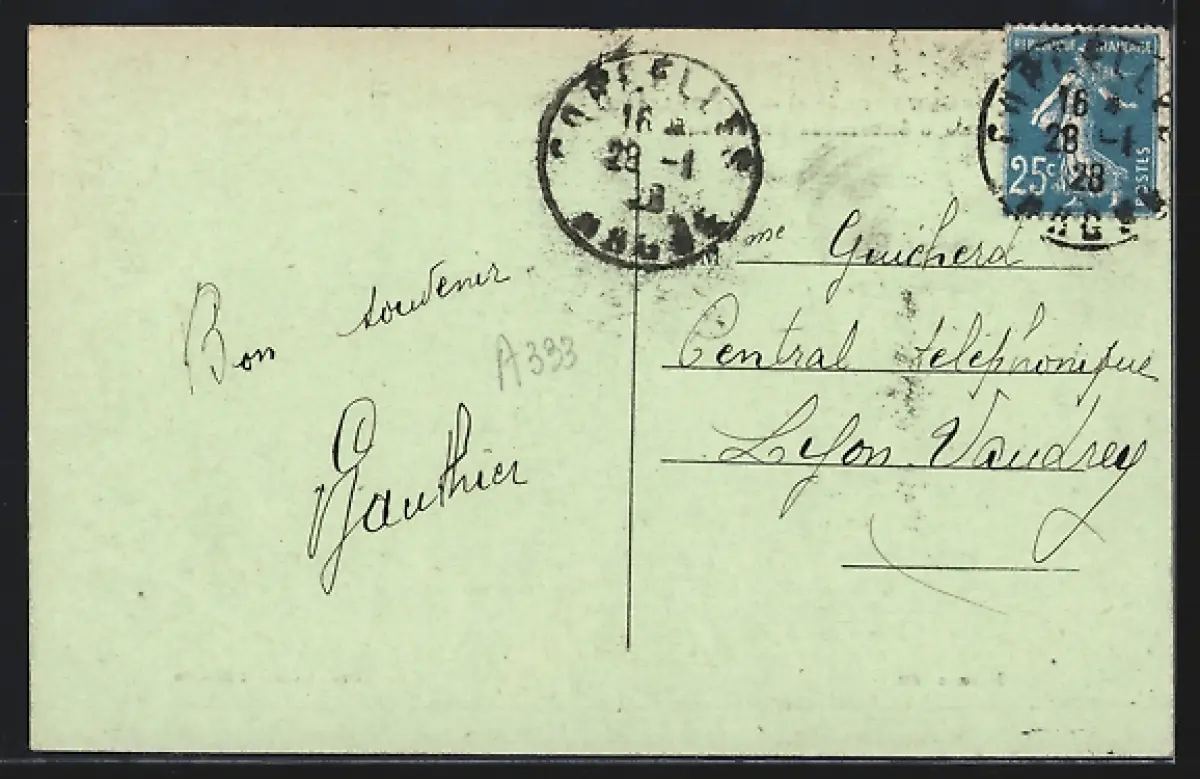 REPUBLIQUE FRANÇAISE
16
28 -1
28
25c
POSTES
16
28 -1
28
Mme Guicherd
Bon souvenir
Central téléphonique
A333
Lyon Vaudrey
Gauthier